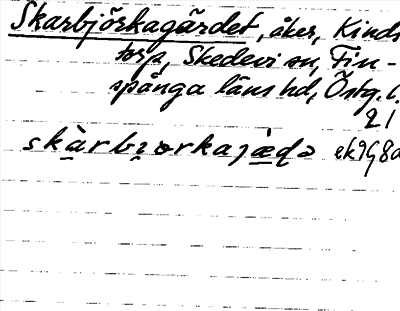 Skarbjörkagärdet, åker, Kinds
torp, Skedevi sn, Fin-
spånga läns hd, Östg. l.
21
skàrbɩɵrkajæ̀də